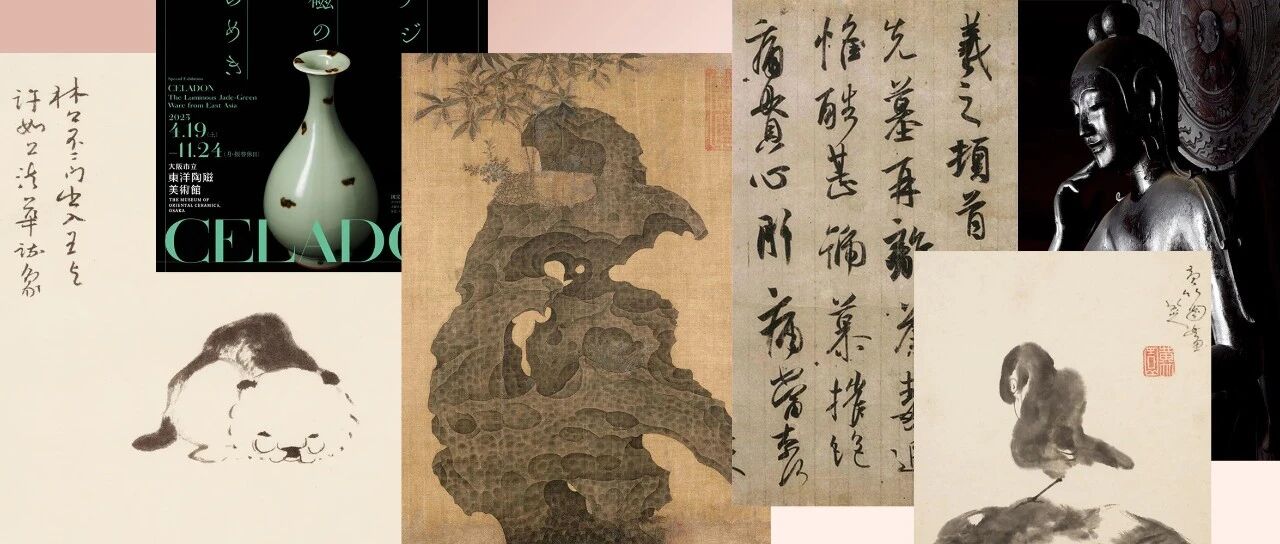 林公不二門出入王与
許如上法華
らめき
磁の
ジ
Special Exhibition
CELADON
The Luminous Jade-Green
Ware from East Asia
2025
4.19(土)
—11.24(月・振替休日)
大阪市立
東洋陶磁
美術館
THE MUSEUM OF
ORIENTAL CERAMICS,
OSAKA
CELADO
羲之頓首
先墓再離荼毒追
惟酷甚號慕摧絶
痛貫心肝痛當奈何